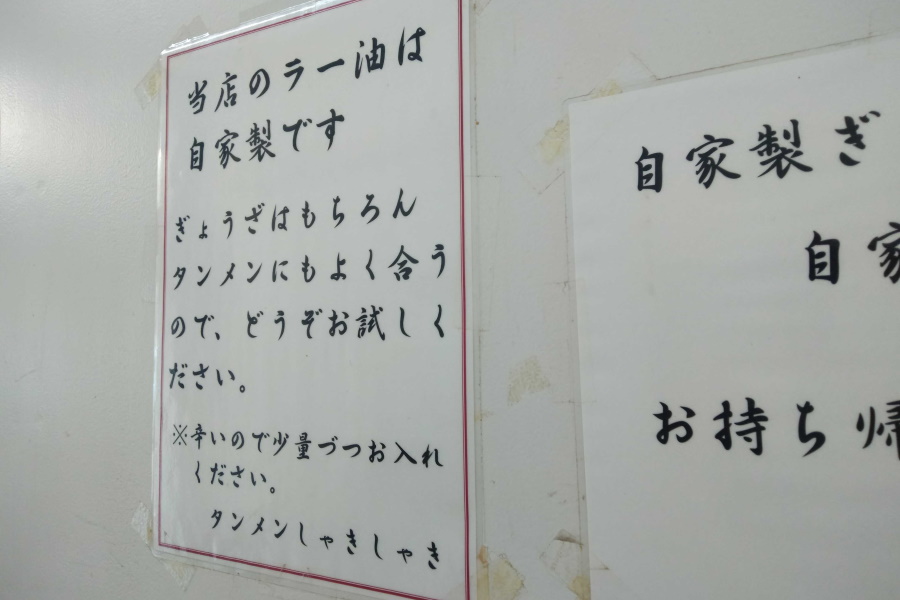 当店のラー油は
自家製です
ぎょうざはもちろん
タンメンにもよく合う
ので、どうぞお試しく
ださい。
※辛いので少量づつお入れ
ください。
タンメンしゃきしゃき
自家製ぎ
自家
お持ち帰